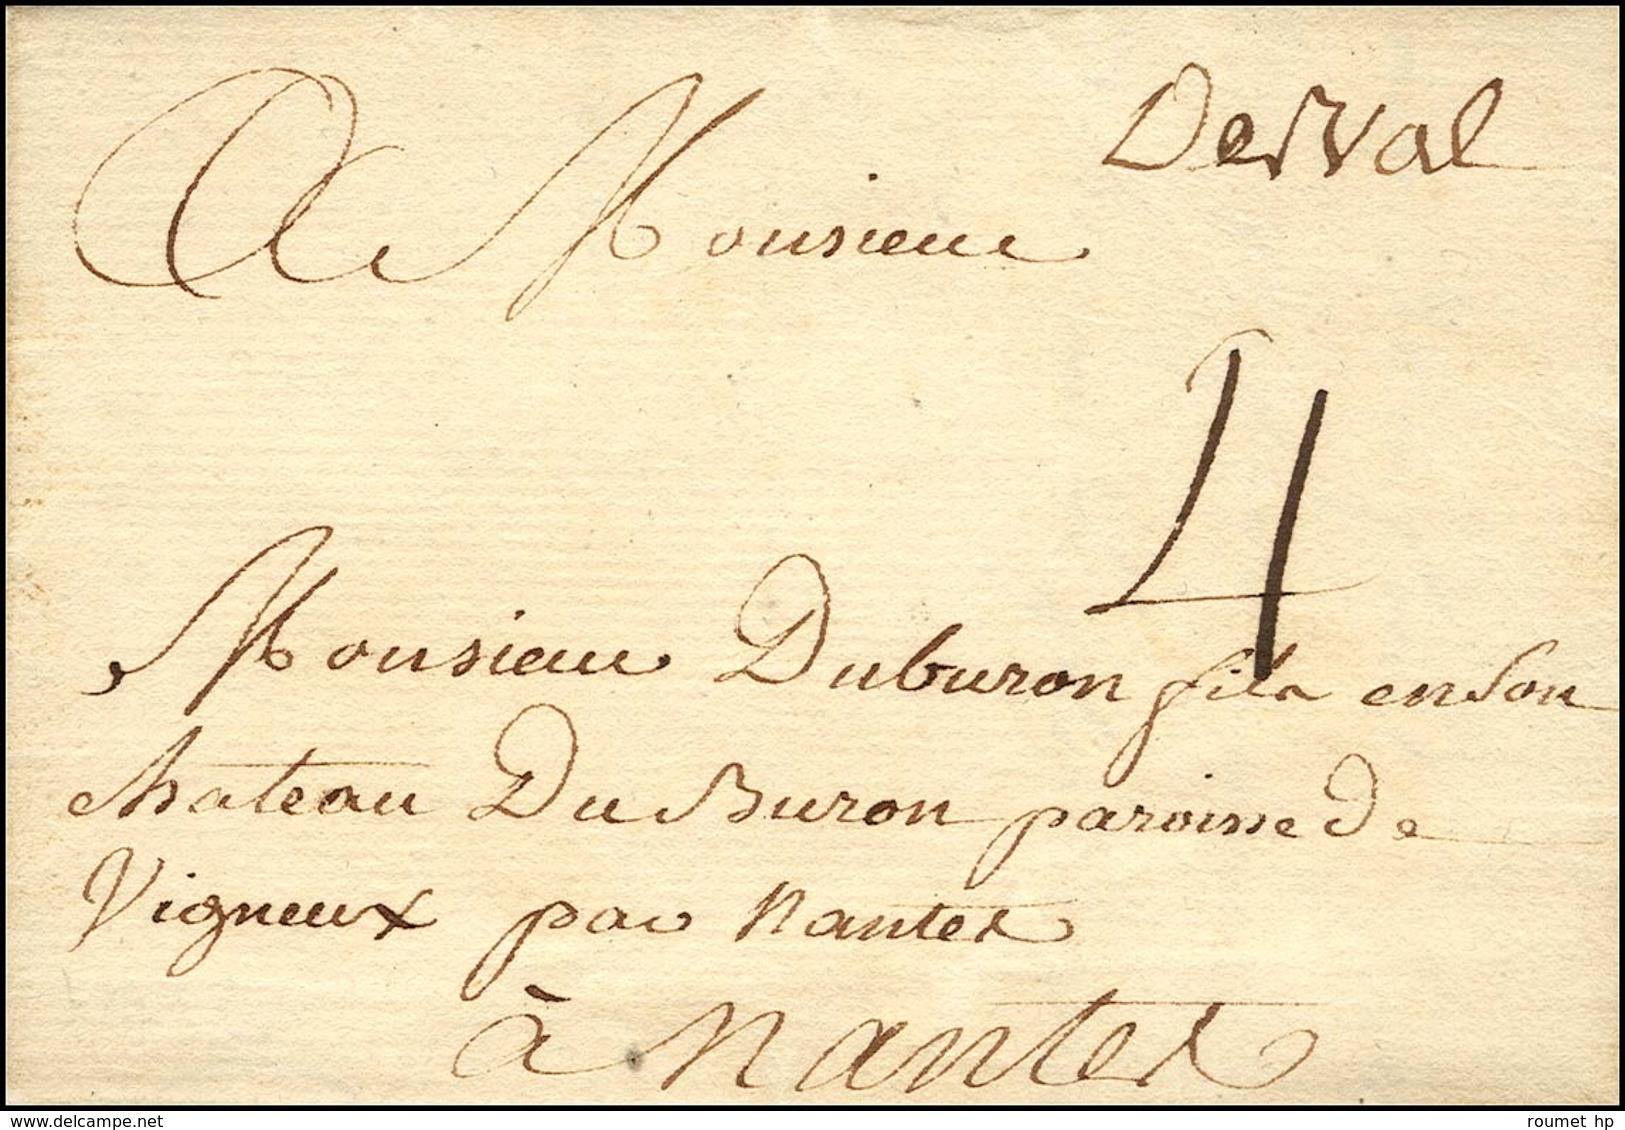 Derval
A Monsieur
4
Monsieur Duburon fils en son
chateau Du Buron paroisse de
Vigneux par Nantes
à Nantes
roumet hp